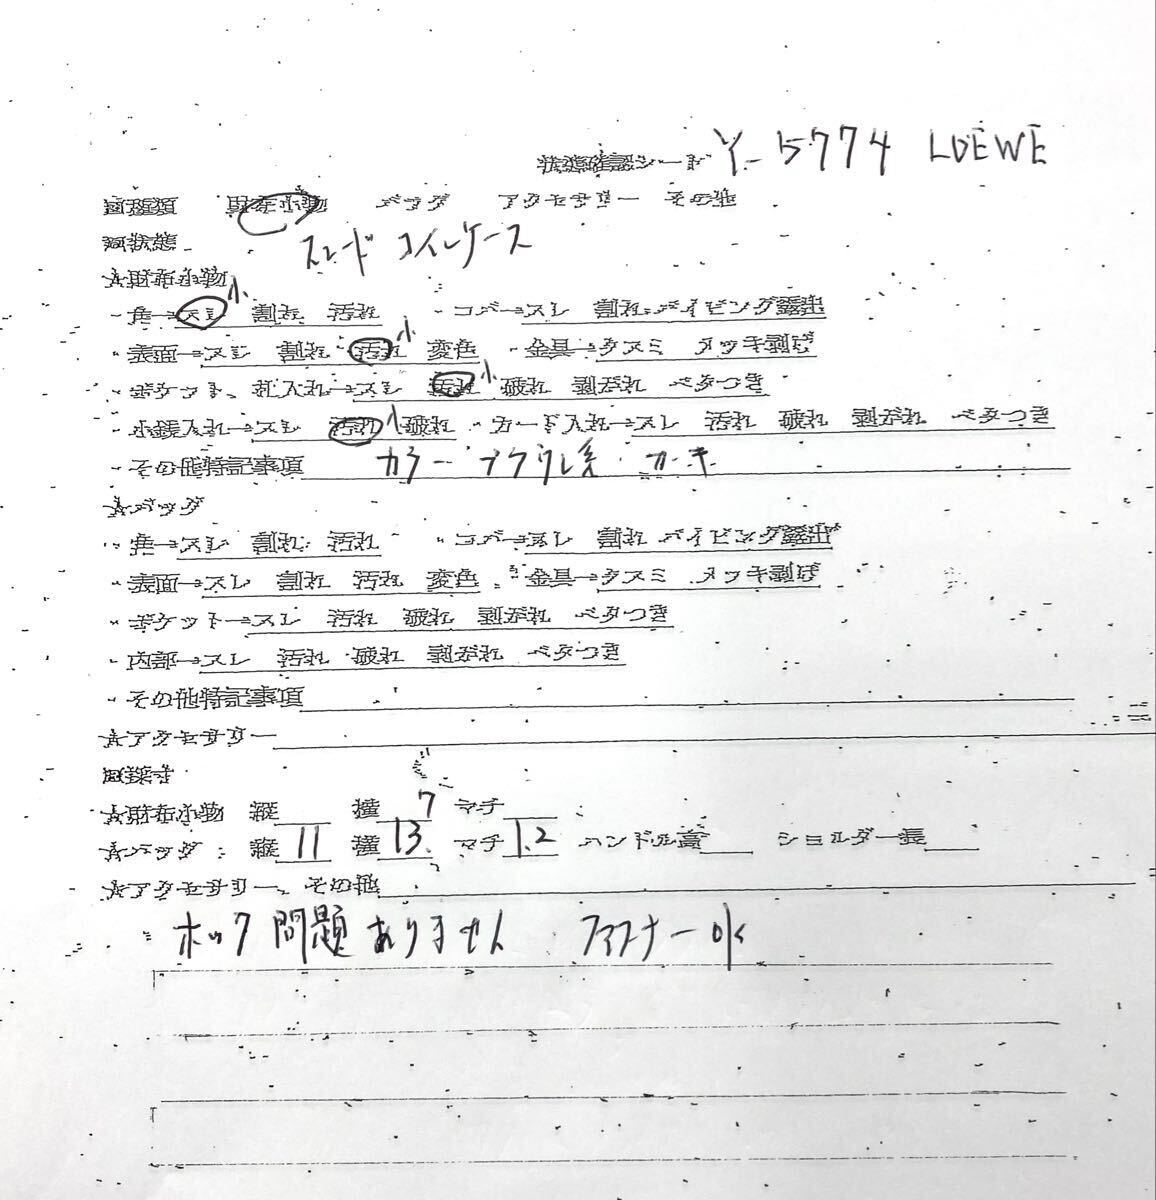 状態確認シート Y-5774 LOEWE
☑種類 財布小物 バッグ アクセサリー その他
☑状態 スエード コインケース
★財布小物
・角→スレ 小 割れ 汚れ ・コバ→スレ 割れ パイピング露出
・表面→スレ 割れ 汚れ 小 変色 ・金具→クスミ メッキ剥げ
・ポケット、札入れ→スレ 汚れ 小 破れ 剥がれ ベタつき
・小銭入れ→スレ 汚れ 小 破れ ・カード入れ→スレ 汚れ 破れ 剥がれ ベタつき
・その他特記事項 カラー カーキ
★バッグ
・角→スレ 割れ 汚れ ・コバ→スレ 割れ パイピング露出
・表面→スレ 割れ 汚れ 変色 ・金具→クスミ メッキ剥げ
・ポケット→スレ 汚れ 破れ 剥がれ ベタつき
・内部→スレ 汚れ 破れ 剥がれ ベタつき
・その他特記事項
★アクセサリー
☑採寸
★財布小物 縦 横 7 マチ
★バッグ 縦 11 横 13 マチ 1.2 ハンドル高 ショルダー長
★アクセサリー、その他
ホック問題ありません ファスナーok